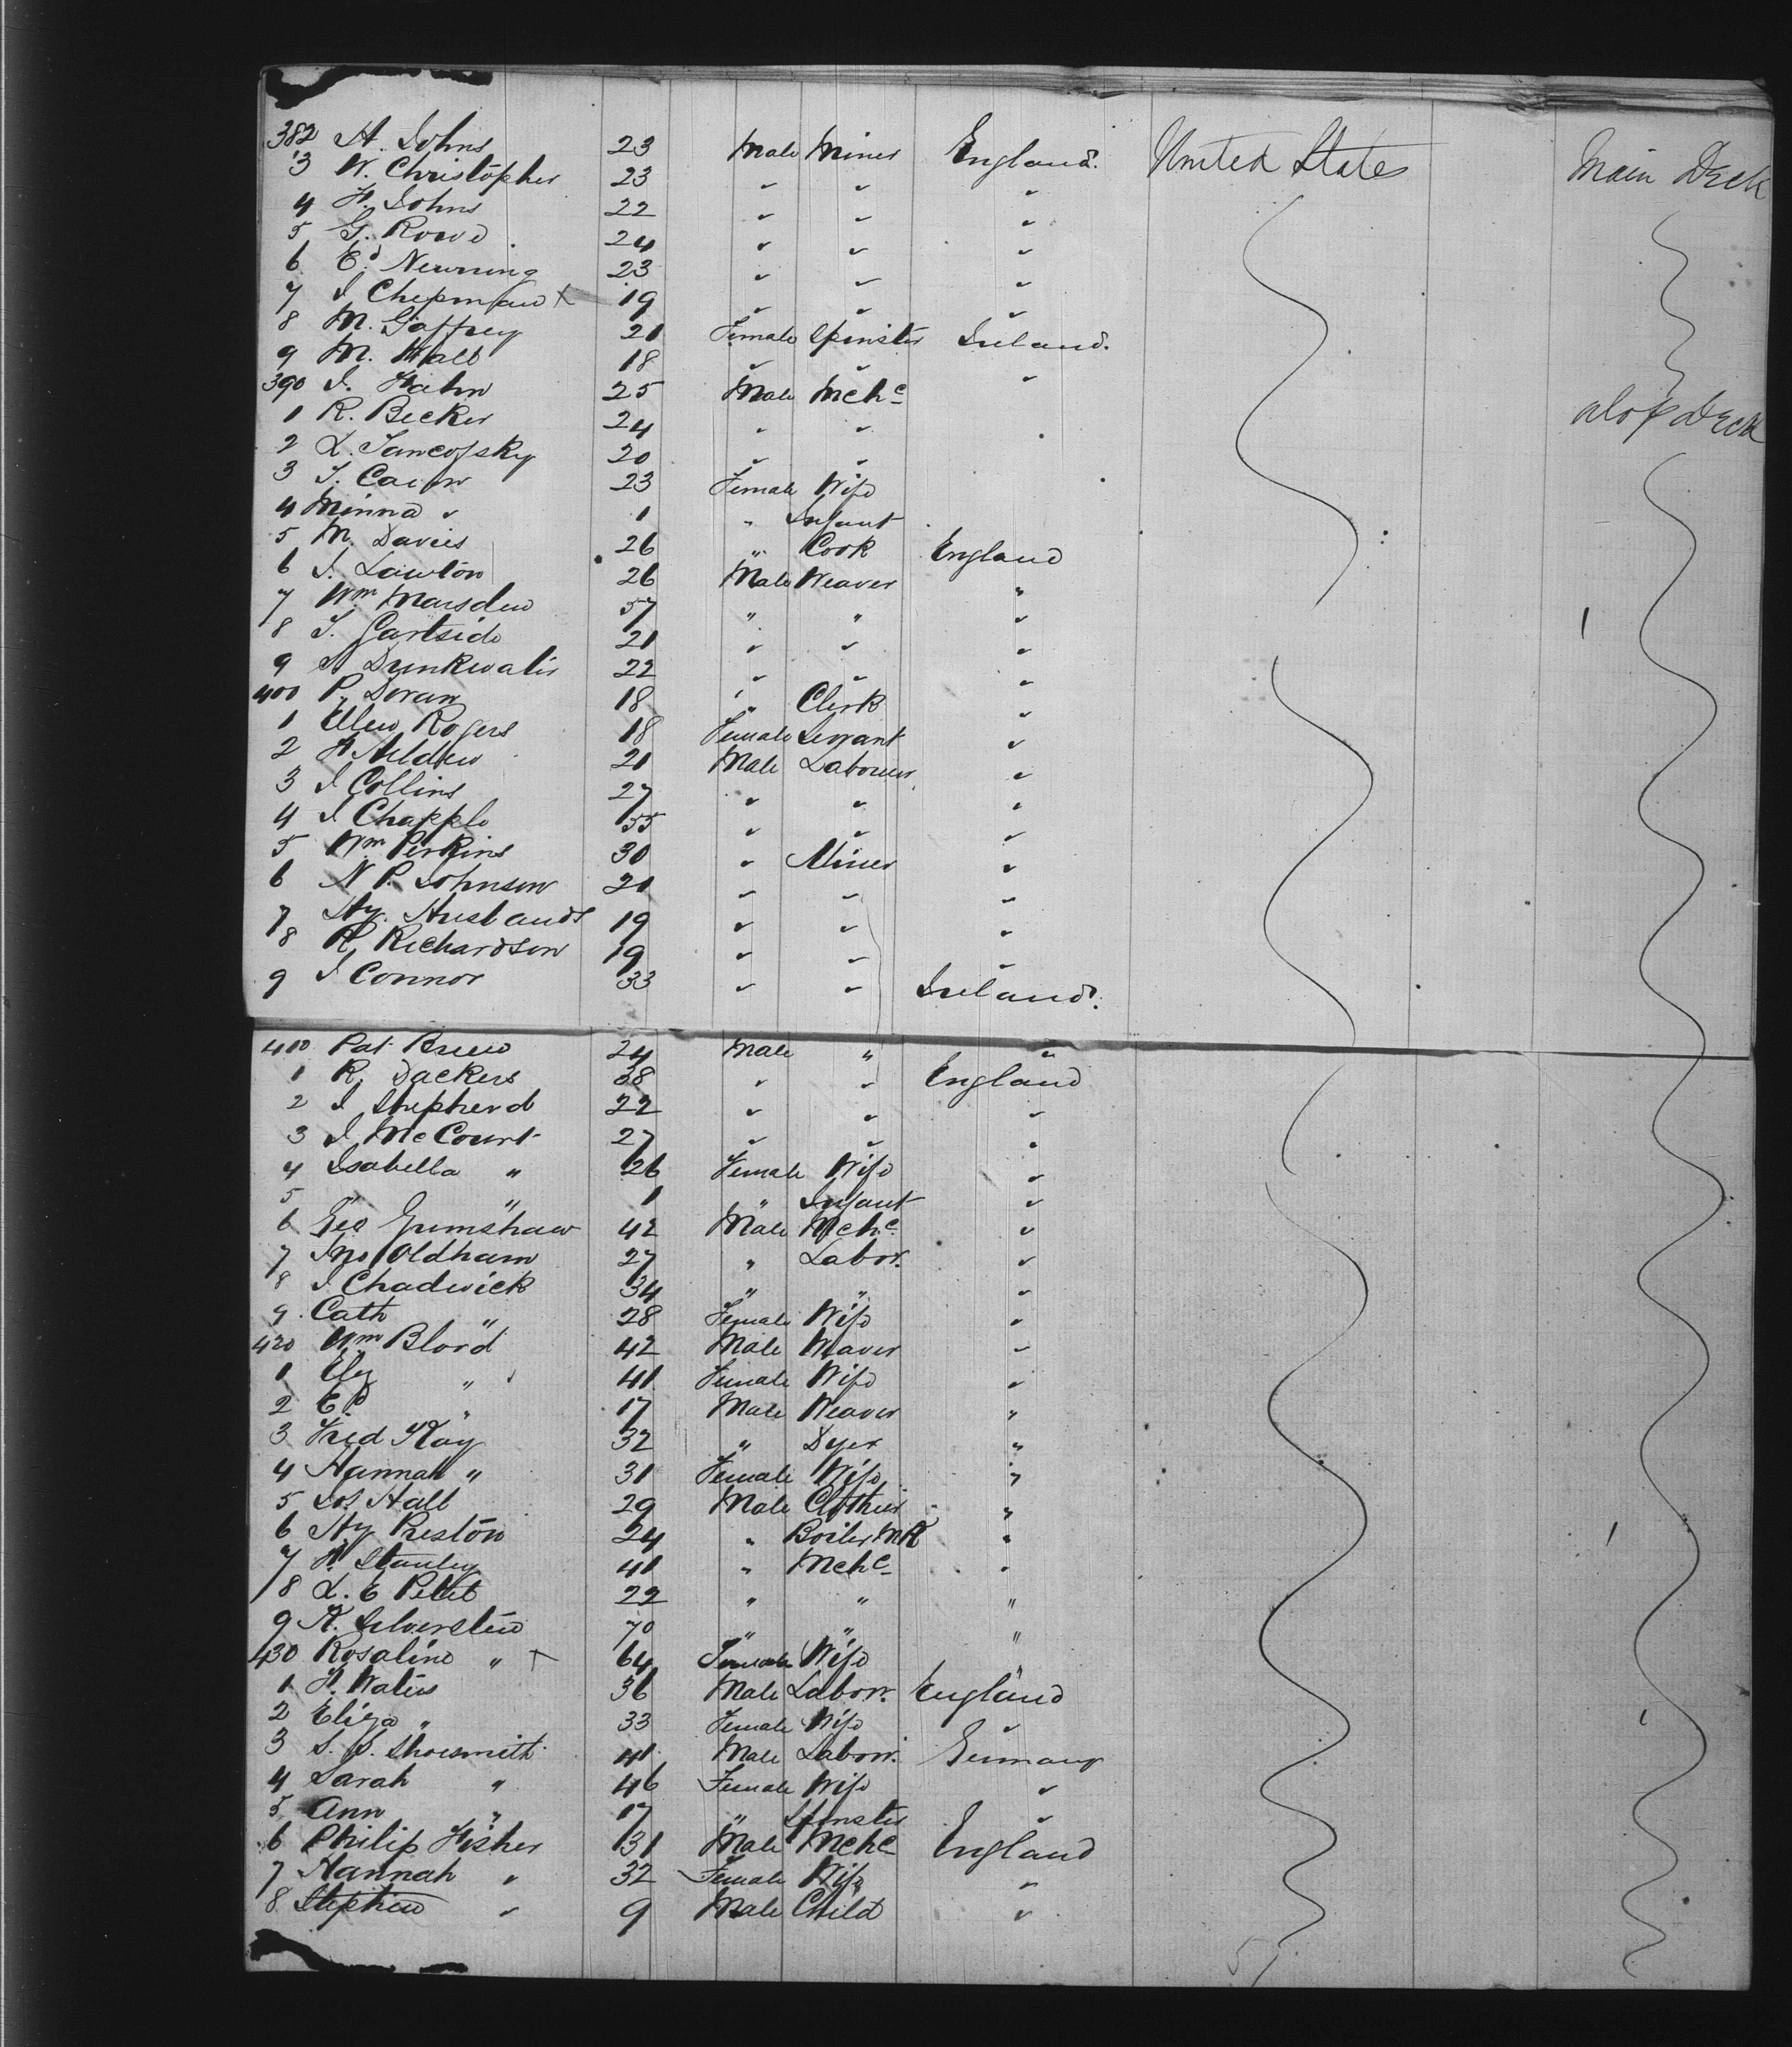 382 H. Johns 23 Male Miner England. United States Main Deck
3 W. Christopher 23 " " "
4 H. Johns 22 " " "
5 G. Rowe 24 " " "
6 Ed Newning 23 " " "
7 J Chepman X 19 " " "
8 M. Gaffrey 21 Female Spinster Ireland.
9 M. Wall 18 " " "
390 J. Hahn 25 Male Mchc
1 R. Becker 24 " " Deck
2 20 " "
3 23 Female Wife
4 Minna " 1 " Infant
5 M. Davies 26 " Cook England
6 J. Lawton 26 Male Weaver "
7 Wm Marsden 57 " " "
8 J. Gartside 21 " " "
9 22 " " "
400 P. Doran 18 " Clerk "
1 Ellen Rogers 18 Female Servant "
2 H 21 Male Labourer "
3 J Collins 27 " " "
4 J Chapple 55 " " "
5 Wm Perkins 30 " Miner "
6 N P. Johnson 21 " " "
7 Hy. Husbands 19 " " "
8 R. Richardson 19 " " "
9 J Connor 33 " " Ireland.
410 Pat 24 Male " "
1 R. Dackers 38 " " England
2 J Shepherd 22 " " "
3 J. McCourt 27 " " "
4 Isabella " 26 Female Wife "
5 " 1 " Infant "
6 Geo Grimshaw 42 Male Mchc "
7 Jno Oldham 27 " Labor. "
8 J Chadwick 34 " " "
9 Cath " 28 Female Wife "
420 Wm 42 Male Weaver "
1 " 41 Female Wife "
2 Ed " 17 Male Weaver "
3 Fred Kay 32 " Dyer "
4 Hannah " 31 Female Wife "
5 Jos Hall 29 Male Clothier "
6 Hy Preston 24 " Boiler Mk "
7 H. Stanley 41 " Mchc "
8 L. E 22 " " "
9 K. Silverstein 70 " " "
430 Rosaline " X 64 Female Wife "
1 H. 36 Male Labor. England
2 Eliza " 33 Female Wife "
3 S. S. Shoesmith 41 Male Labor. Germany
4 Sarah " 46 Female Wife "
5 Ann " 17 " Spinster "
6 Philip Fisher 31 Male Mchc England
7 Hannah " 32 Female Wife "
8 Stephen " 9 Male Child "